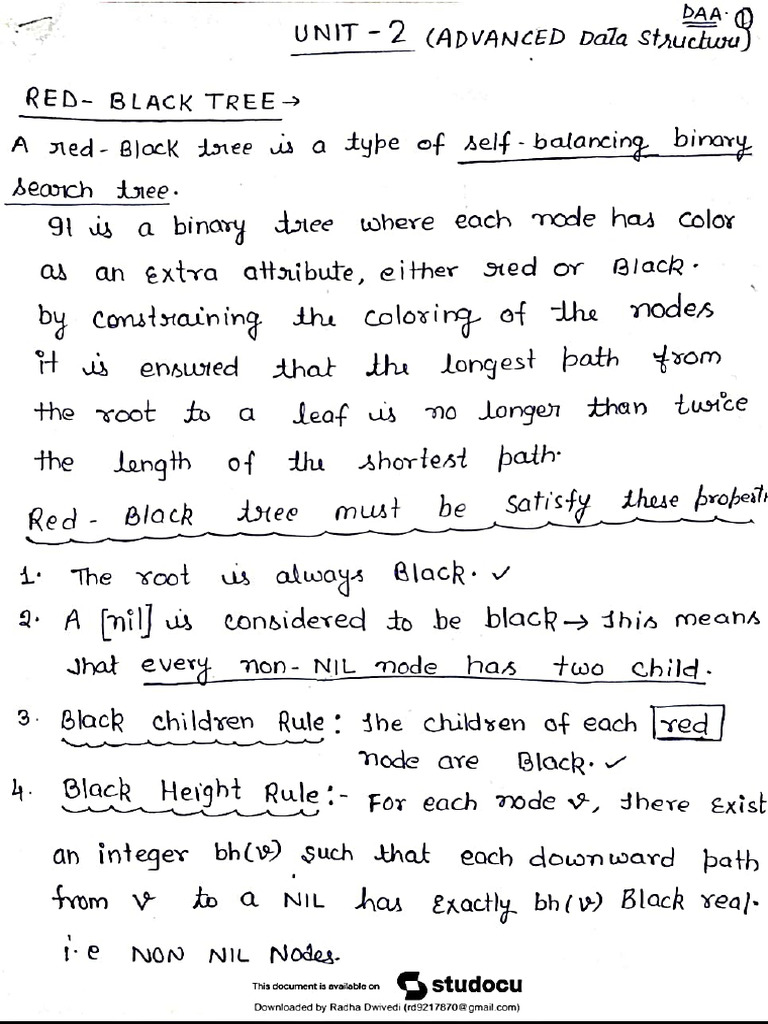 DAA. 1
UNIT - 2 (ADVANCED Data Structure)
RED- BLACK TREE →
A red-Black tree is a type of self-balancing binary
search tree.
It is a binary tree where each node has color
as an Extra attribute, either red or Black.
by constraining the coloring of the nodes
it is ensured that the longest path from
the root to a leaf is no longer than twice
the length of the shortest path.
Red - Black tree must be satisfy these properti
1. The root is always Black. ✓
2. A [nil] is considered to be black → this means
that every non-NIL node has two child.
3. Black children Rule: The children of each red
node are Black. ✓
4. Black Height Rule:- For each node v, there Exist
an integer bh(v) such that each downward path
from v to a NIL has Exactly bh(v) Black real.
i.e NON NIL Nodes.
This document is available on studocu
Downloaded by Radha Dwivedi (rd9217870@gmail.com)